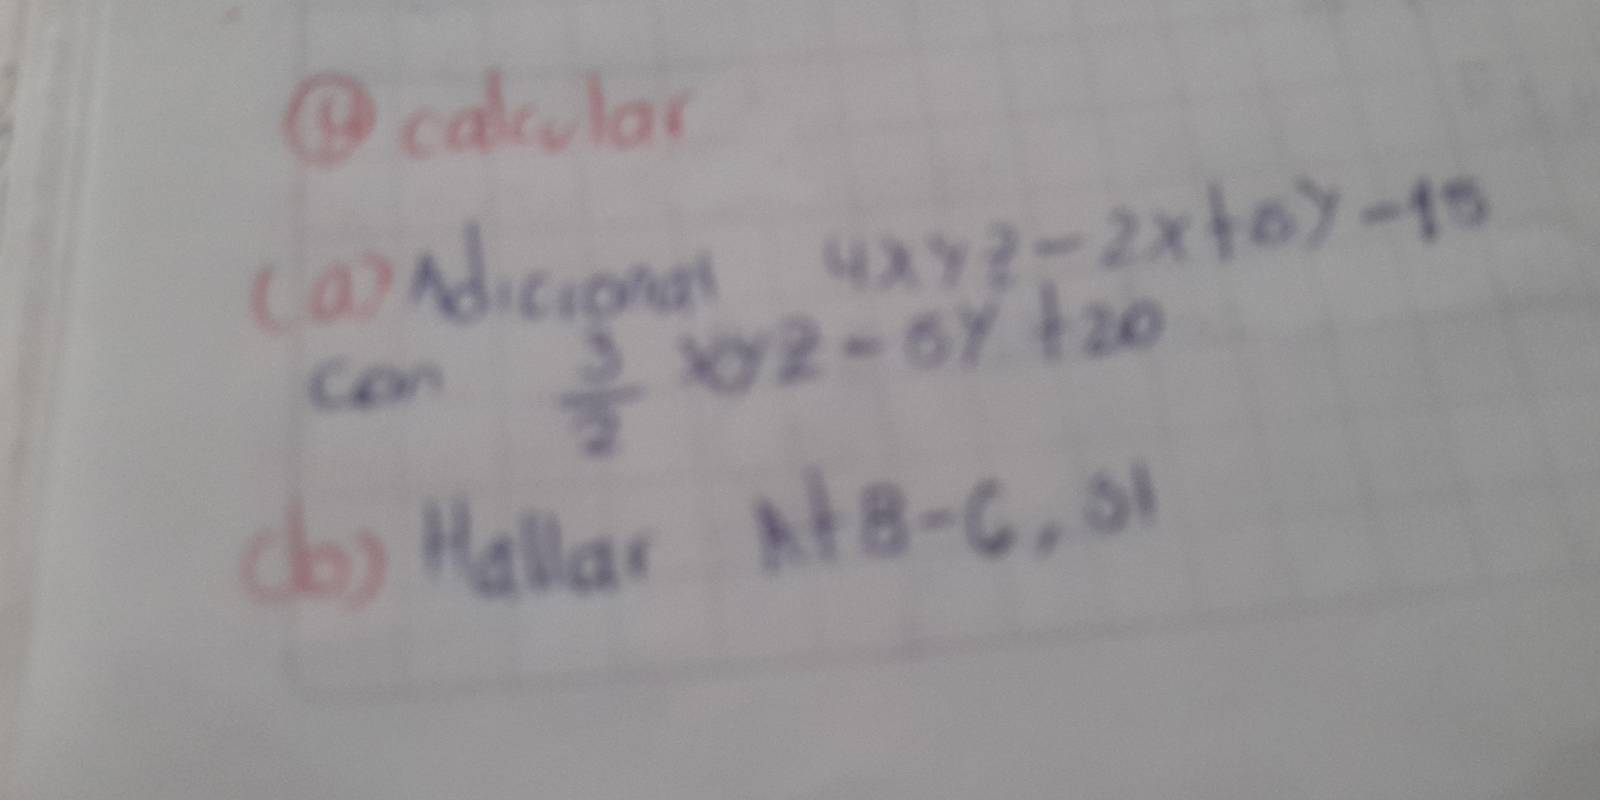 calcular
(a) Adicional 4xyz - 2x + 6y - 15
con 3/2 xyz - 6y + 20
(b) Hallar A+B-C, si